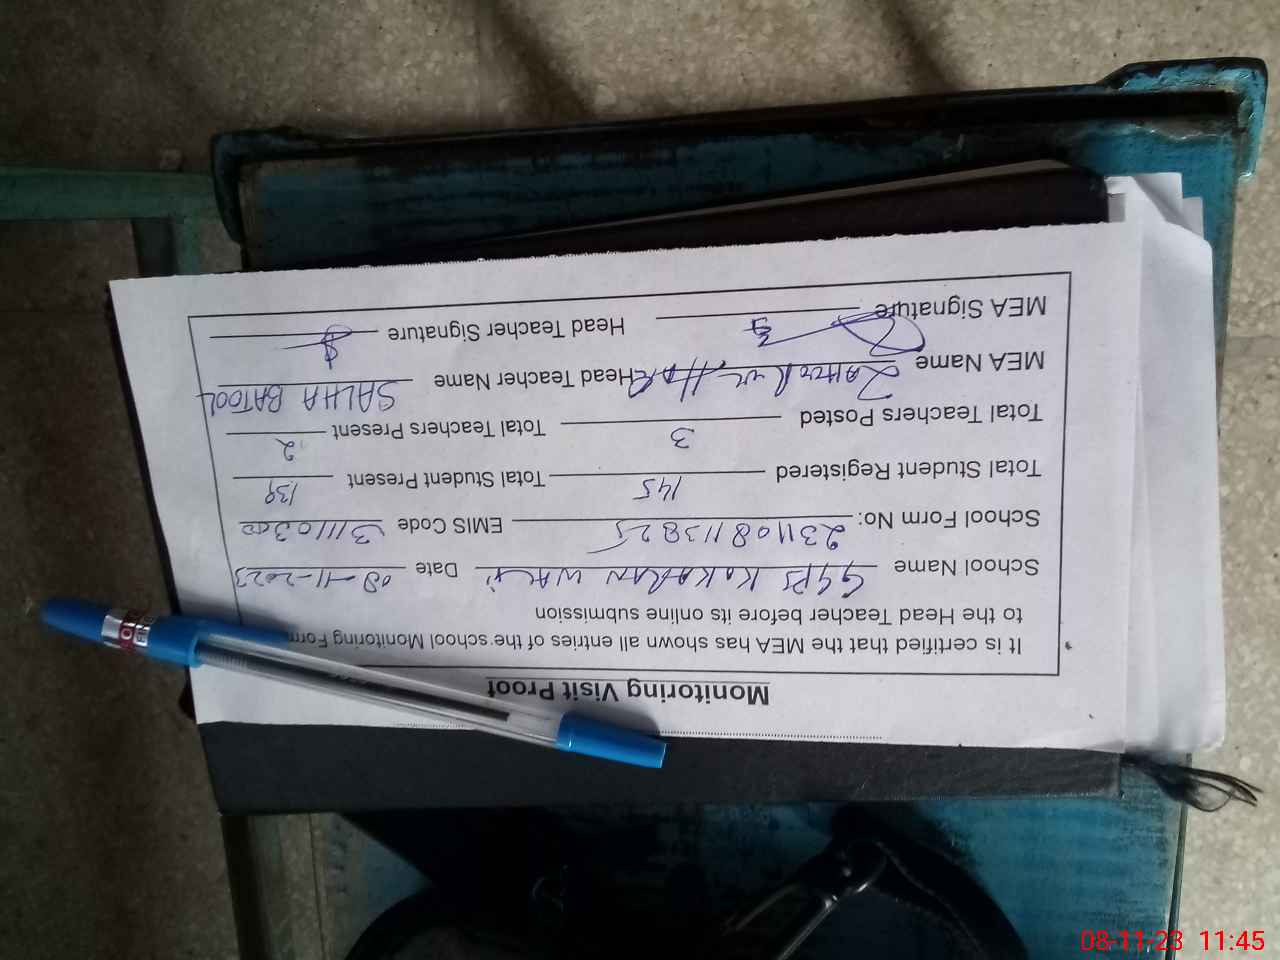 Monitoring Visit Proof
It is certified that the MEA has shown all entries of the school Monitoring Form
to the Head Teacher before its online submission
School Name GGPS KAKARAN WALI Date 08-11-2023
School Form No: 231108113825 EMIS Code 31110300
Total Student Registered 145 Total Student Present 139
Total Teachers Posted 3 Total Teachers Present 2
MEA Name Head Teacher Name SALHA BATOOL
MEA Signature Head Teacher Signature
08-11-23 11:45